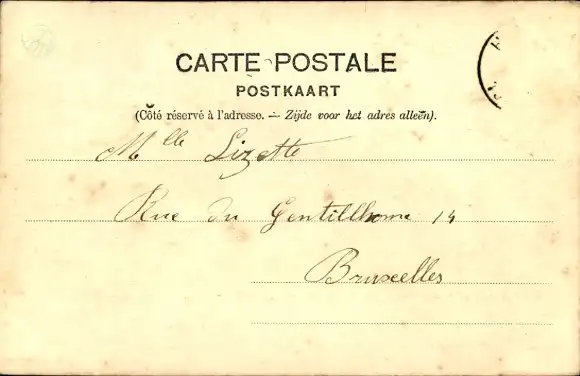 CARTE POSTALE
POSTKAART
(Côté réservé à l'adresse. — Zijde voor het adres alleen).
Mlle Lizette
Rue du Gentillhome 14
Bruxelles